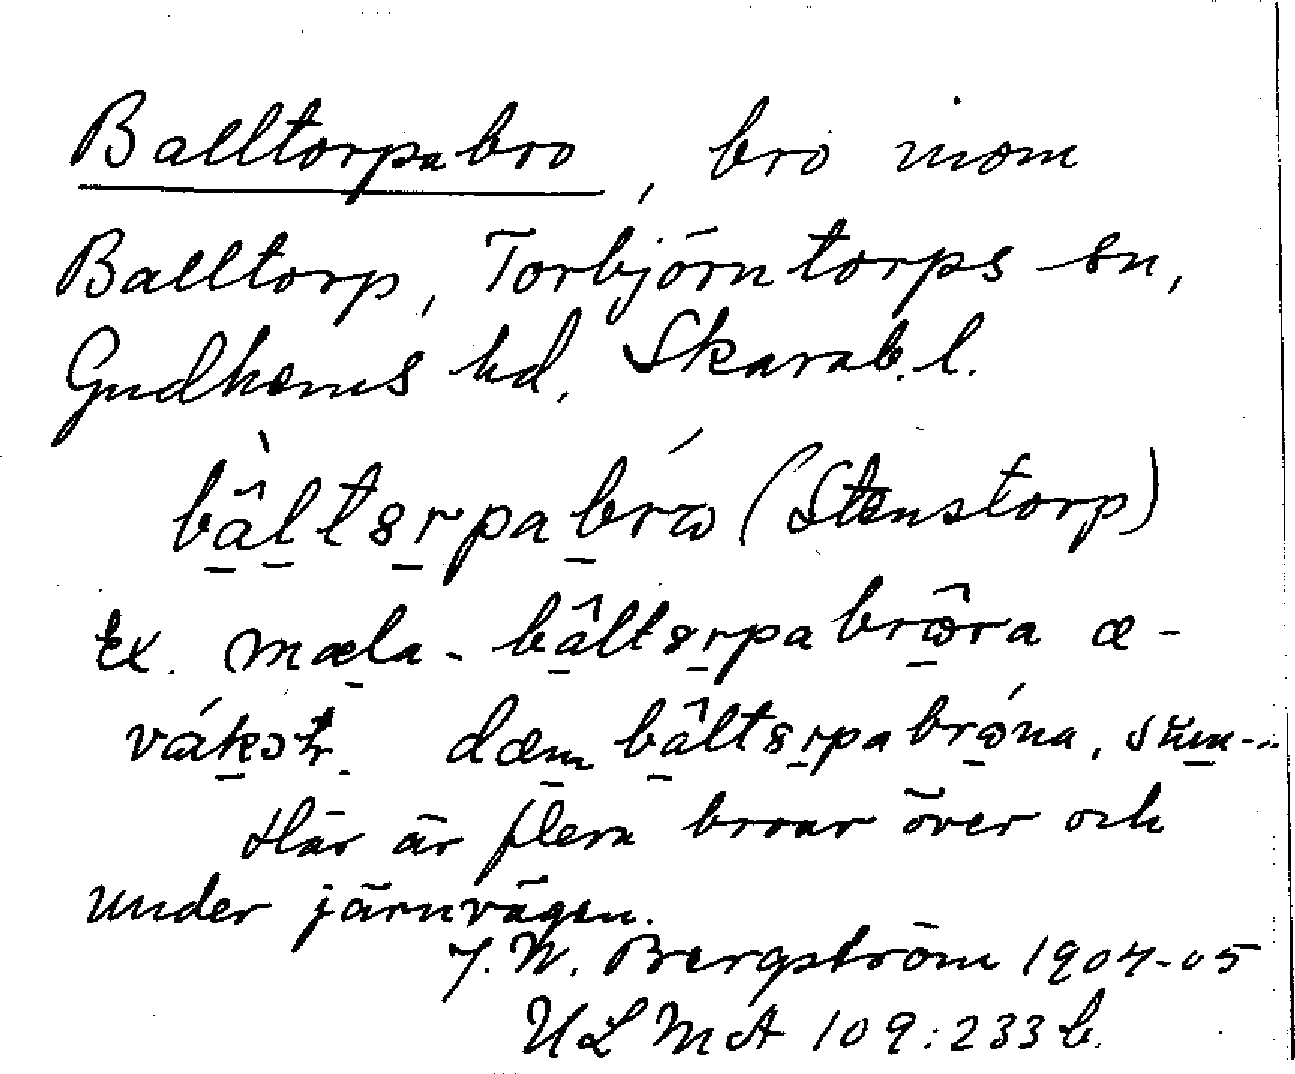 Balltorpabro, bro inom
Balltorp, Torbjörntorps sn,
Gudhems hd, Skarab. l.
bàltsrpabró (Stenstorp)
Ex. mæla - bâltsrpabrôra æ -
dæm bâltsrpabróna,
Här är flera broar över och
under järnvägen.
J. W. Bergström 1904-05
ULMA 109:233 b.